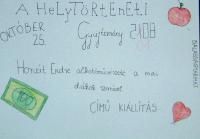 A HeLyTÖRTéNETi
OKTÓBER
25.
Gyűjtemény 2108
Honzit Endre alkotóművészete a mai
diákok szemével
CÍMŰ KIÁLLÍTÁS
100